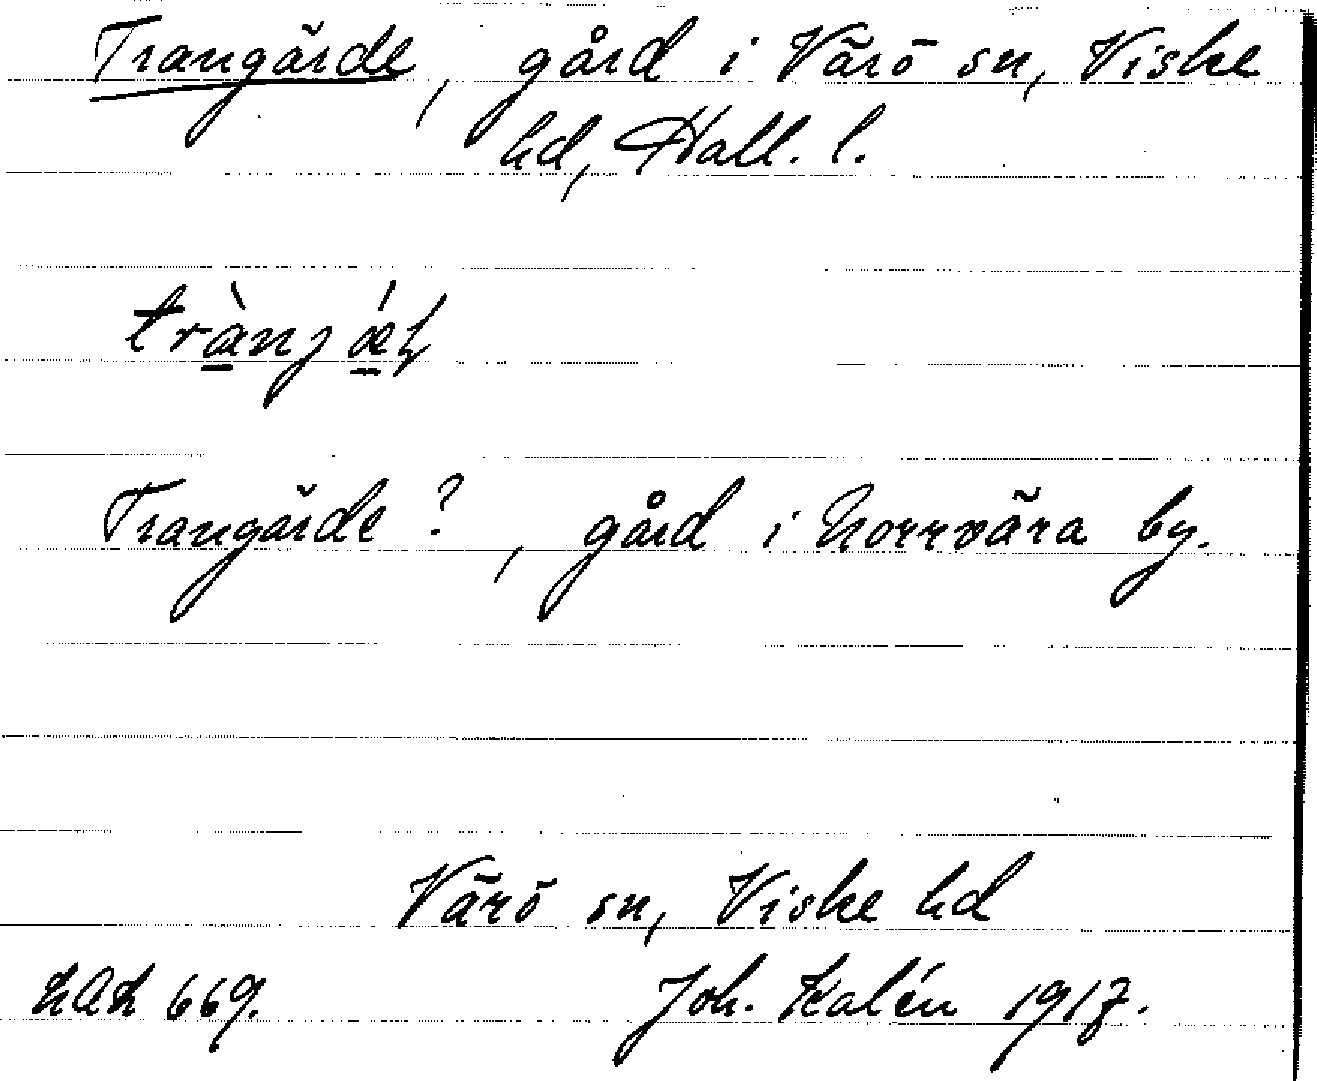 Trangärde, gård i Värö sn, Viske
hd, Hall. l.
Trangärde ?, gård i Norrvära by.
Värö sn, Viske hd
Joh. Kalén 1917.